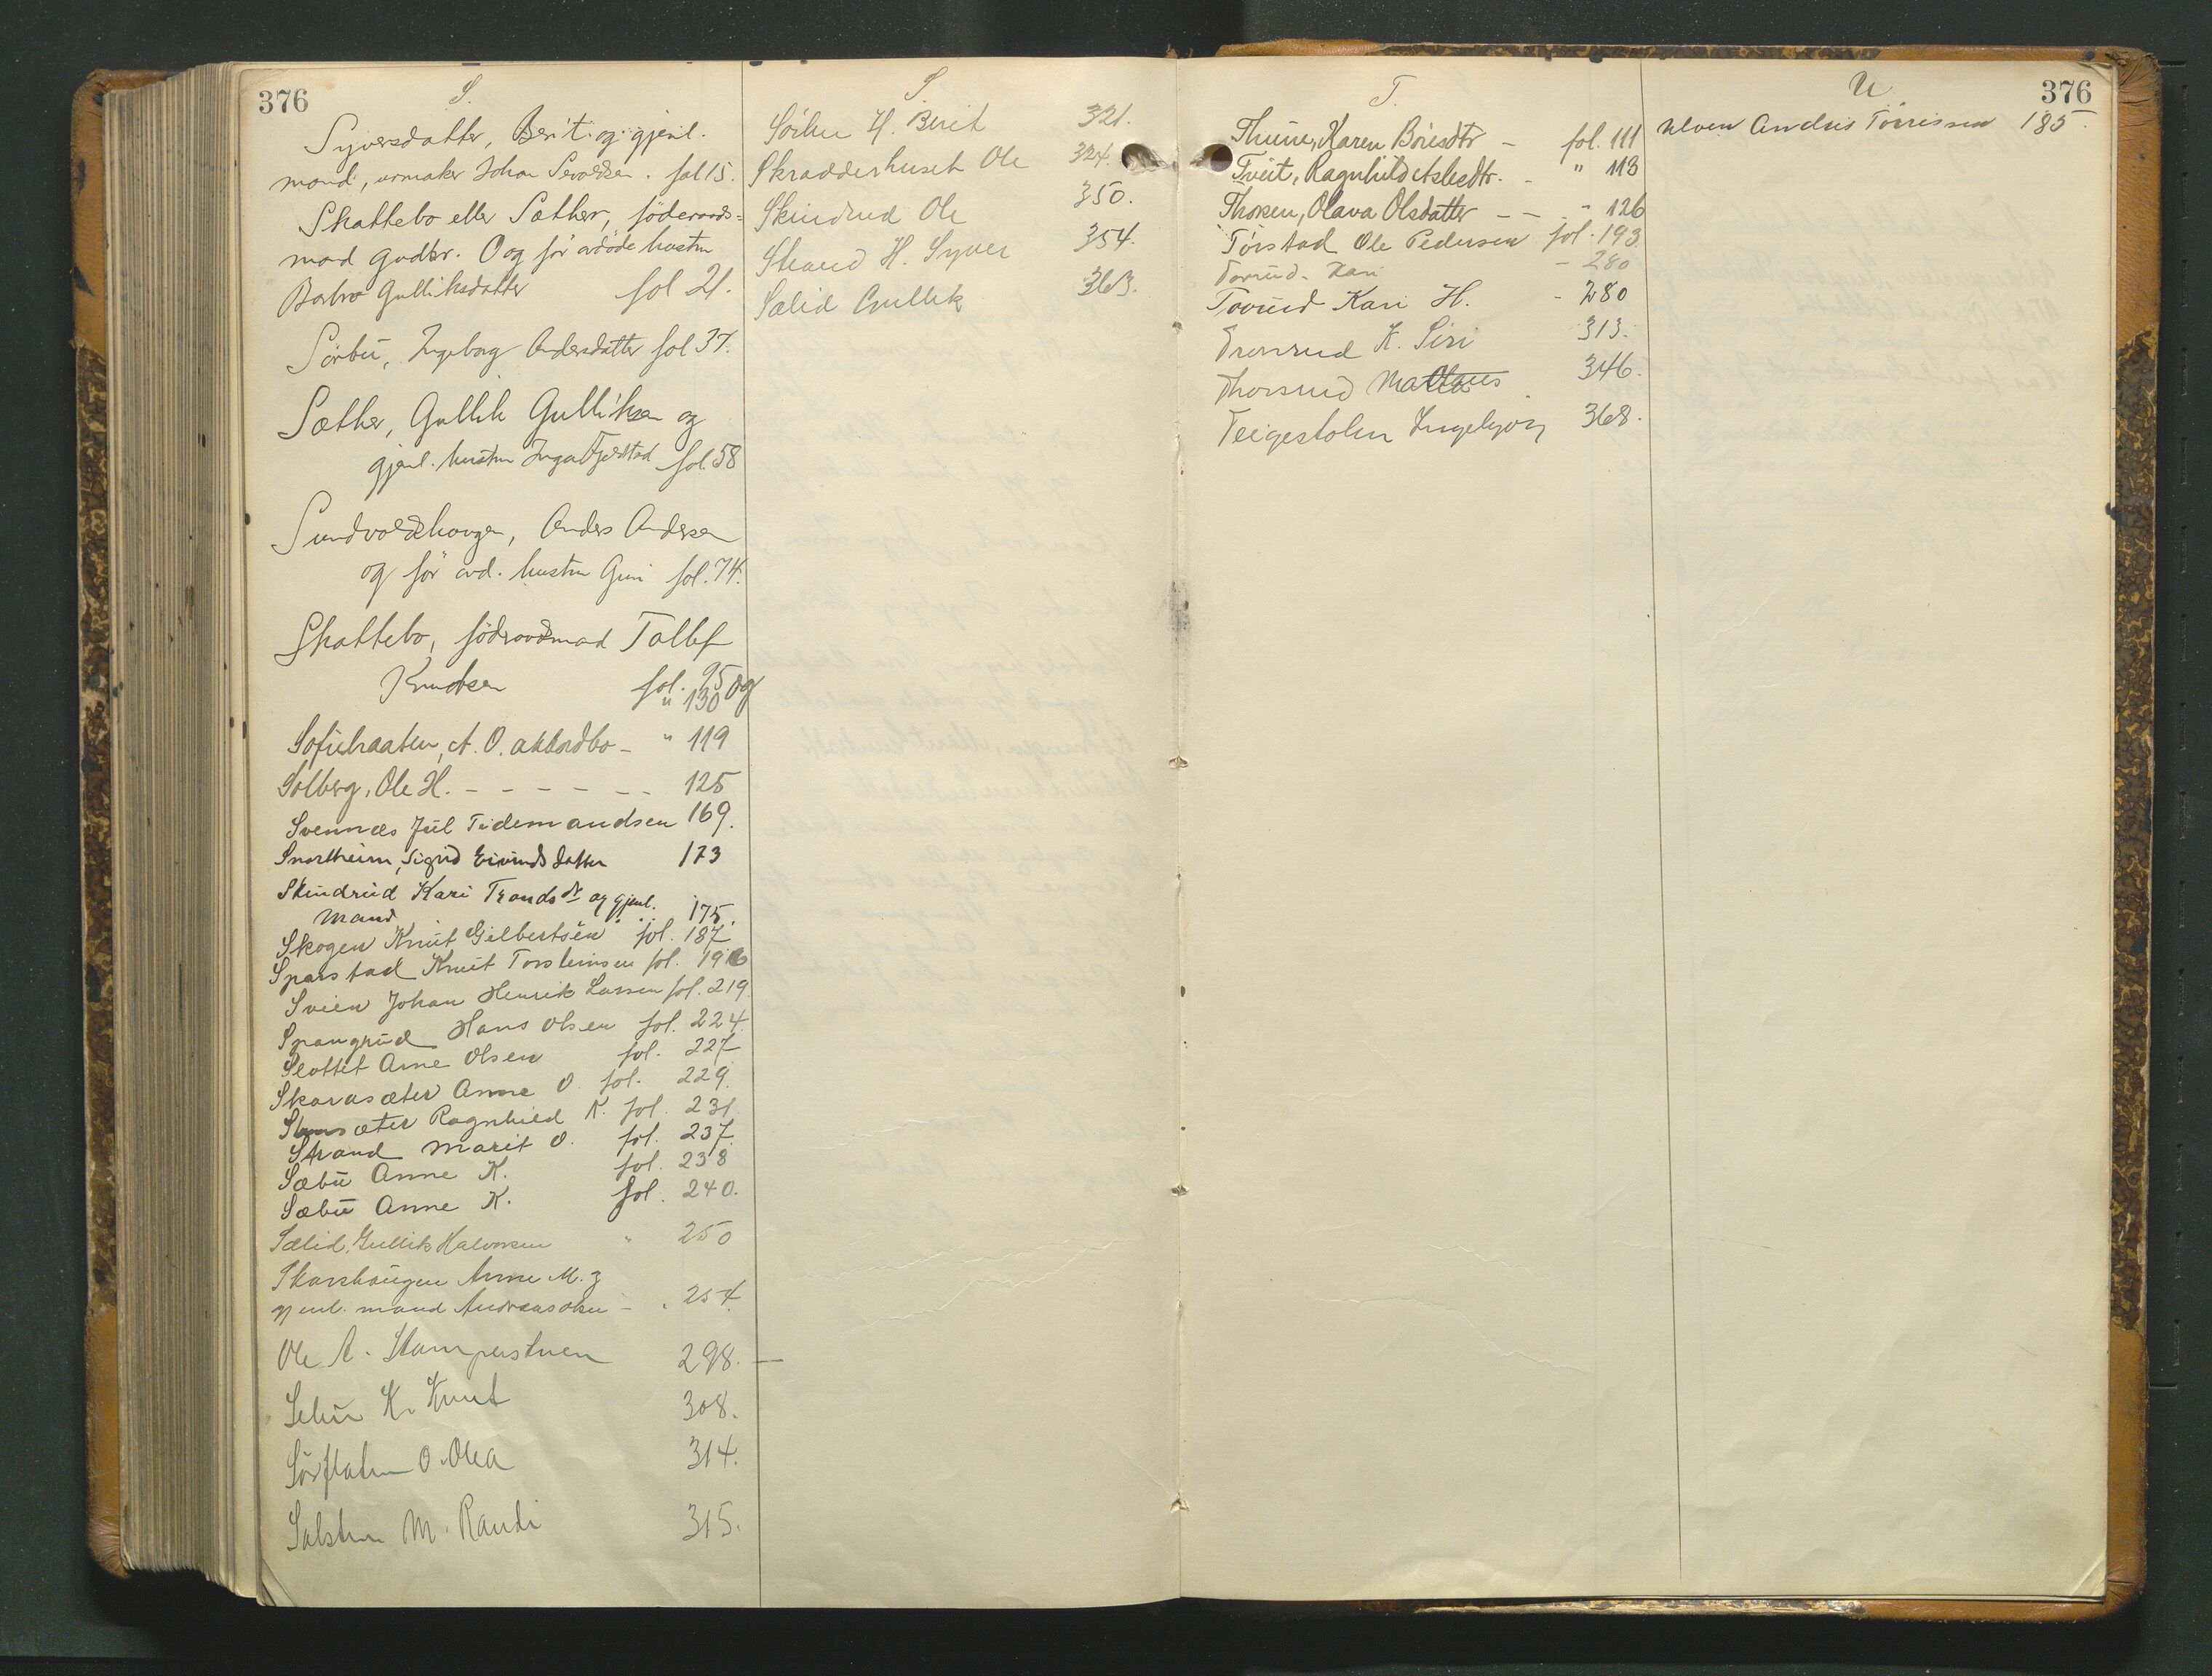 376
S.
Syversdatter, Berit og gjenl.
mand, urmaker Johan Sevaldsen. fol 15.
Skattebo eller Sæther, föderaads-
mand Gudbr. O og før avdöde hustru
Barbro Gulliksdatter fol 21.
Sørbü, Ingeborg Andersdatter fol 37.
Sæther, Gullik Gulliksen og
gjenl. hustru Inga Fjeldstad fol. 58
Sundvoldshaugen, Anders Andersen
og før avd. hustru Guri fol. 74.
Skattebo, föderaadsmand Tollef
Knudsen fol. 95 og
" 130
Sofiebraaten, A. O. akkordbo - " 119
Solberg, Ole H. - - - - - - 125
Svennæs Jül Tidemandsen 169.
Snortheim, Sigrid Eivindsdatter 173
Skindrüd Kari Trondsdr og gjenl.
mand 175.
Skogen Knüt Gilbertsen fol. 187
Sparstad Knüt Torsteinsen fol. 196
Sveen Johan Henrik Larsen fol. 219.
Spangrüd Hans Olsen fol. 224.
Slottet Arne Olsen fol. 227
Skarasæter Anne O. fol. 229.
sæter Ragnhild K. fol. 231.
Strand Marit O. fol. 237.
Sæbü Anne K. fol. 238
Sæbü Anne K. fol. 240.
Sælid, Gullik Halvorsen " 250
Skarshaugen Anne M. og
gjenl. mand Andreas Olsen - " 254.
Ole A. Stamperstuen 298. -
Sebü K. Knut 308.
Sørflaten O. Olea 314.
M. Randi 315.
S.
Sørlie H. Berit 321.
Skradderhuset Ole 324.
Skindrud Ole 350.
Strand H. Syver 354.
Sælid Gullik 363.
T.
Thüne, Karen Boresdtr - fol. 111
Tveit, Ragnhild Aslesdtr. - " 113
Thoresen, Olava Olsdatter - - " 126
Törstad Ole Pedersen fol. 193
Torrüd. Kari - 280
Torrüd Kari H. - 280
Tronrud K. Siri 313.
Thorsrud 346.
Teigestolen Ingebjørg 368.
U
376
Ulven Andris Torrissen 185.